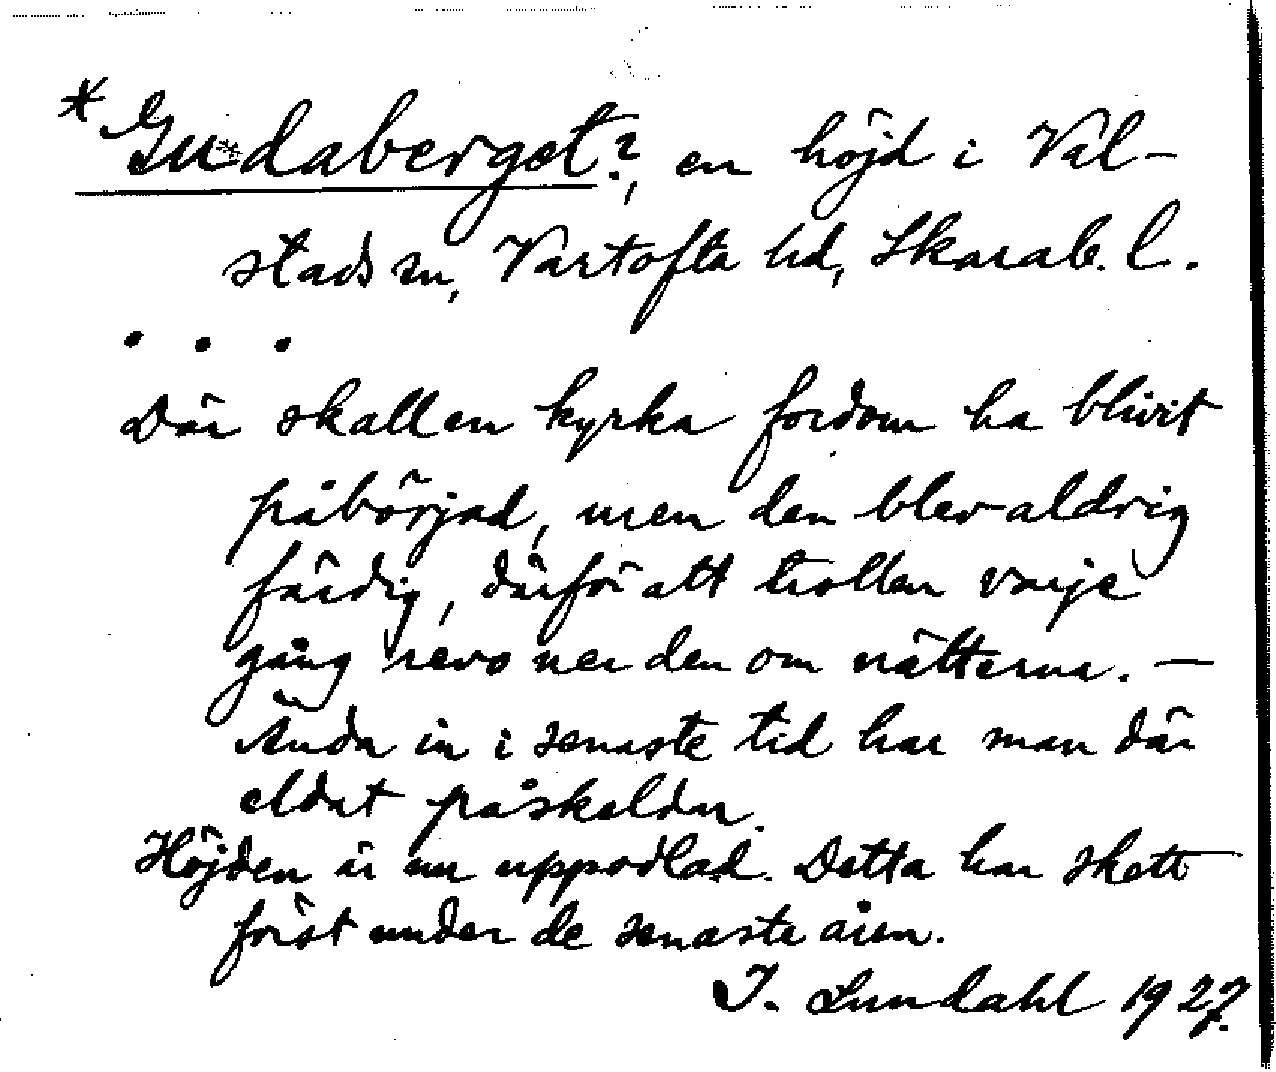 * Gudaberget?, en höjd i Vål-
stads sn, Vartofta hd, Skarab. l.
. . .
Där skall en kyrka fordom ha blivit
påbörjad, men den blev aldrig
färdig, därför att trollen varje
gång revo ner den om nätterna. —
Ända in i senaste tid har man där
eldat påskeldar.
Höjden är nu uppodlad. Detta har skett
först under de senaste åren.
I. Lundahl 1927.